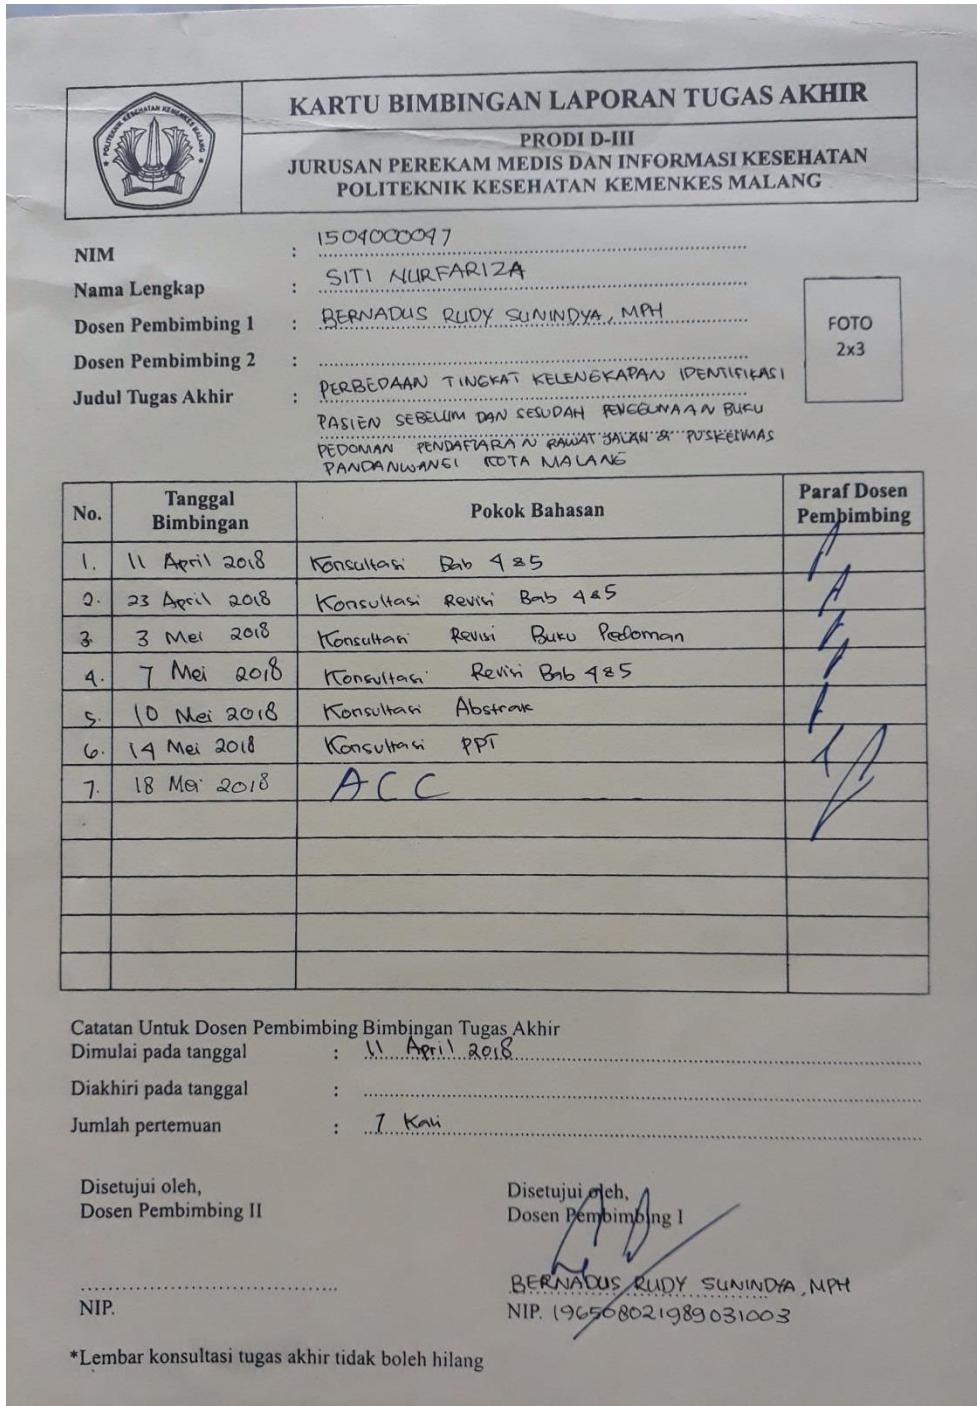 POLITEKNIK KESEHATAN KEMENKES MALANG
KARTU BIMBINGAN LAPORAN TUGAS AKHIR
PRODI D-III
JURUSAN PEREKAM MEDIS DAN INFORMASI KESEHATAN
POLITEKNIK KESEHATAN KEMENKES MALANG
NIM : 1504000047
Nama Lengkap : SITI NURFARIZA
Dosen Pembimbing 1 : BERNADUS RUDY SUNINDYA, MPH
Dosen Pembimbing 2 :
Judul Tugas Akhir : PERBEDAAN TINGKAT KELENGKAPAN IDENTIFIKASI
PASIEN SEBELUM DAN SESUDAH PENGGUNAAN BUKU
PEDOMAN PENDAFTARAN RAWAT JALAN di PUSKESMAS
PANDANWANGI KOTA MALANG
FOTO
2x3
No. Tanggal Bimbingan Pokok Bahasan Paraf Dosen Pembimbing
1. 11 April 2018 Konsultasi Bab 4 & 5
2. 23 April 2018 Konsultasi Revisi Bab 4 & 5
3. 3 Mei 2018 Konsultasi Revisi Buku Pedoman
4. 7 Mei 2018 Konsultasi Revisi Bab 4 & 5
5. 10 Mei 2018 Konsultasi Abstrak
6. 14 Mei 2018 Konsultasi PPT
7. 18 Mei 2018 ACC
Catatan Untuk Dosen Pembimbing Bimbingan Tugas Akhir
Dimulai pada tanggal : 11 April 2018
Diakhiri pada tanggal :
Jumlah pertemuan : 7 Kali
Disetujui oleh,
Dosen Pembimbing II
NIP.
Disetujui oleh,
Dosen Pembimbing I
BERNADUS RUDY SUNINDYA, MPH
NIP. 196508021989031003
*Lembar konsultasi tugas akhir tidak boleh hilang